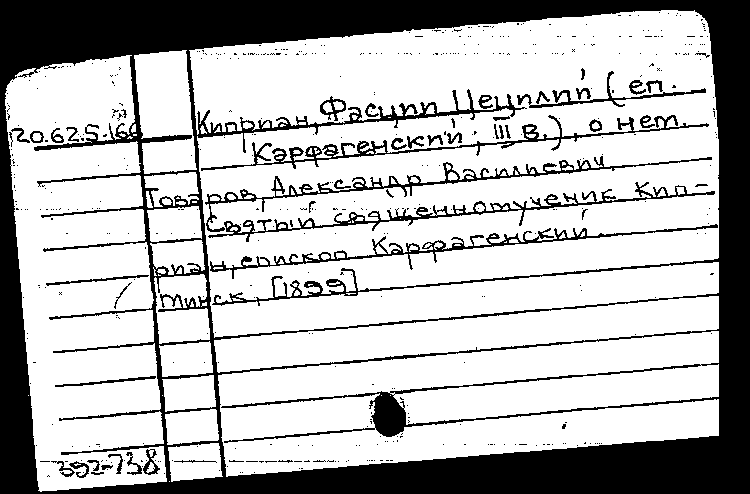 20.62.5.166 Киприан, Фасции Цецилий (еп.
Карфагенский; III в.), о нем.
Товаров, Александр Васильевич.
Святый священномученик Кип-
риан, епископ Карфагенский.
Минск, [1899].
392-738